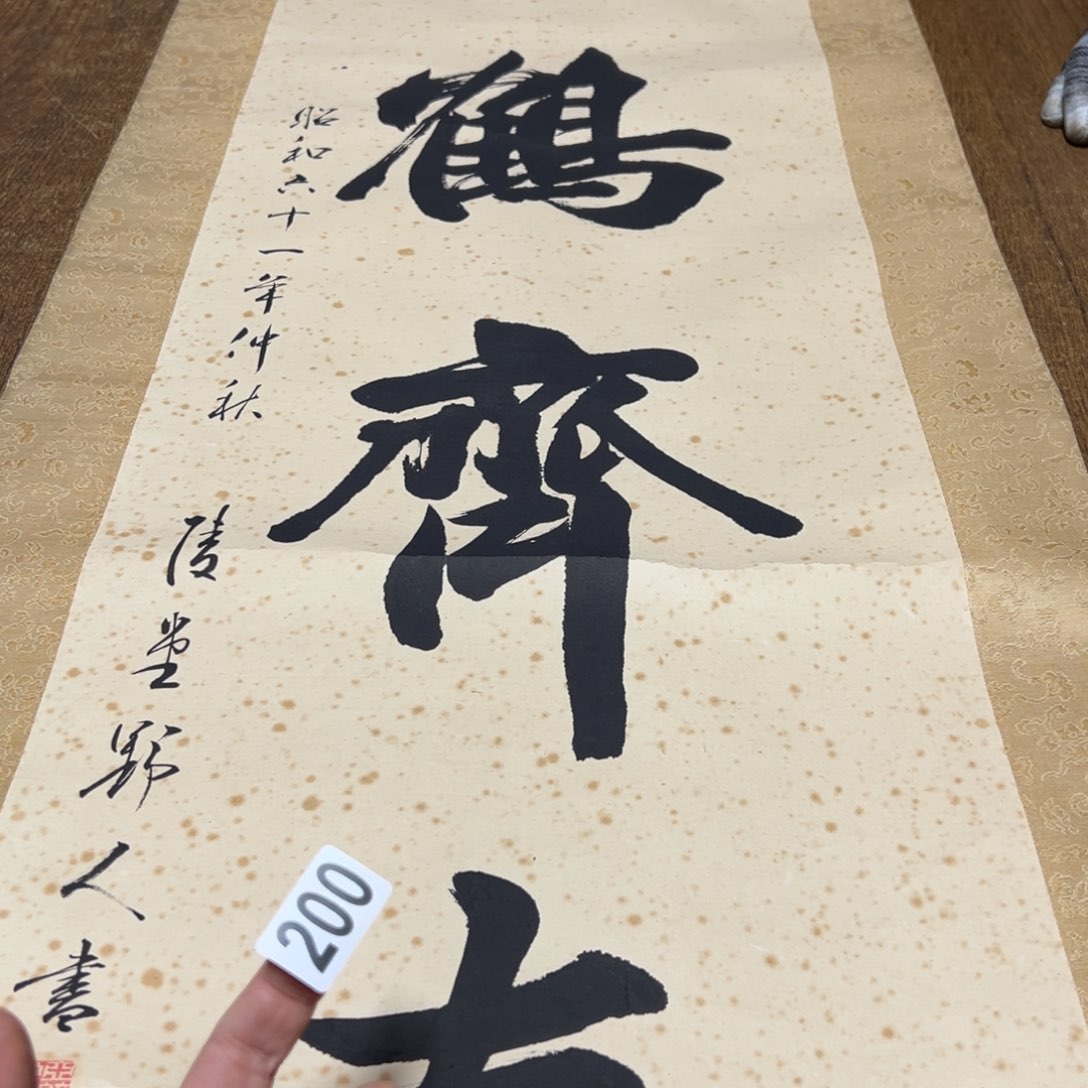 鶴齊
昭和六十一年仲秋 陵堂野人書
200